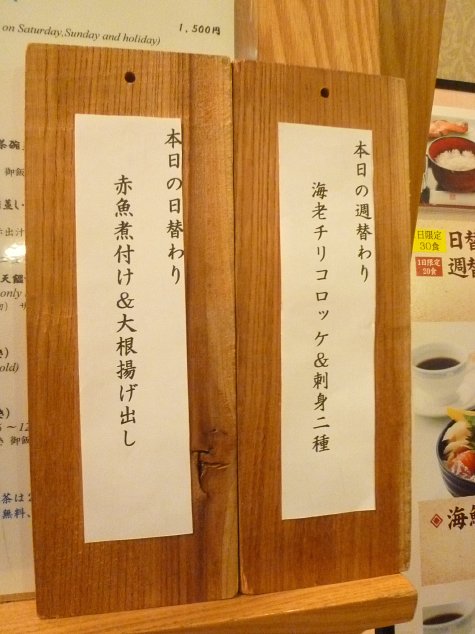 on Saturday,Sunday and holiday)
1,500円
本日の週替わり
海老チリコロッケ&刺身二種
本日の日替わり
赤魚煮付け&大根揚げ出し
日限定
30食
日替
1日限定
20食
週替
海鮮
茶碗
御飯
蒸し
出汁
only
old)
御飯
茶は
無料、